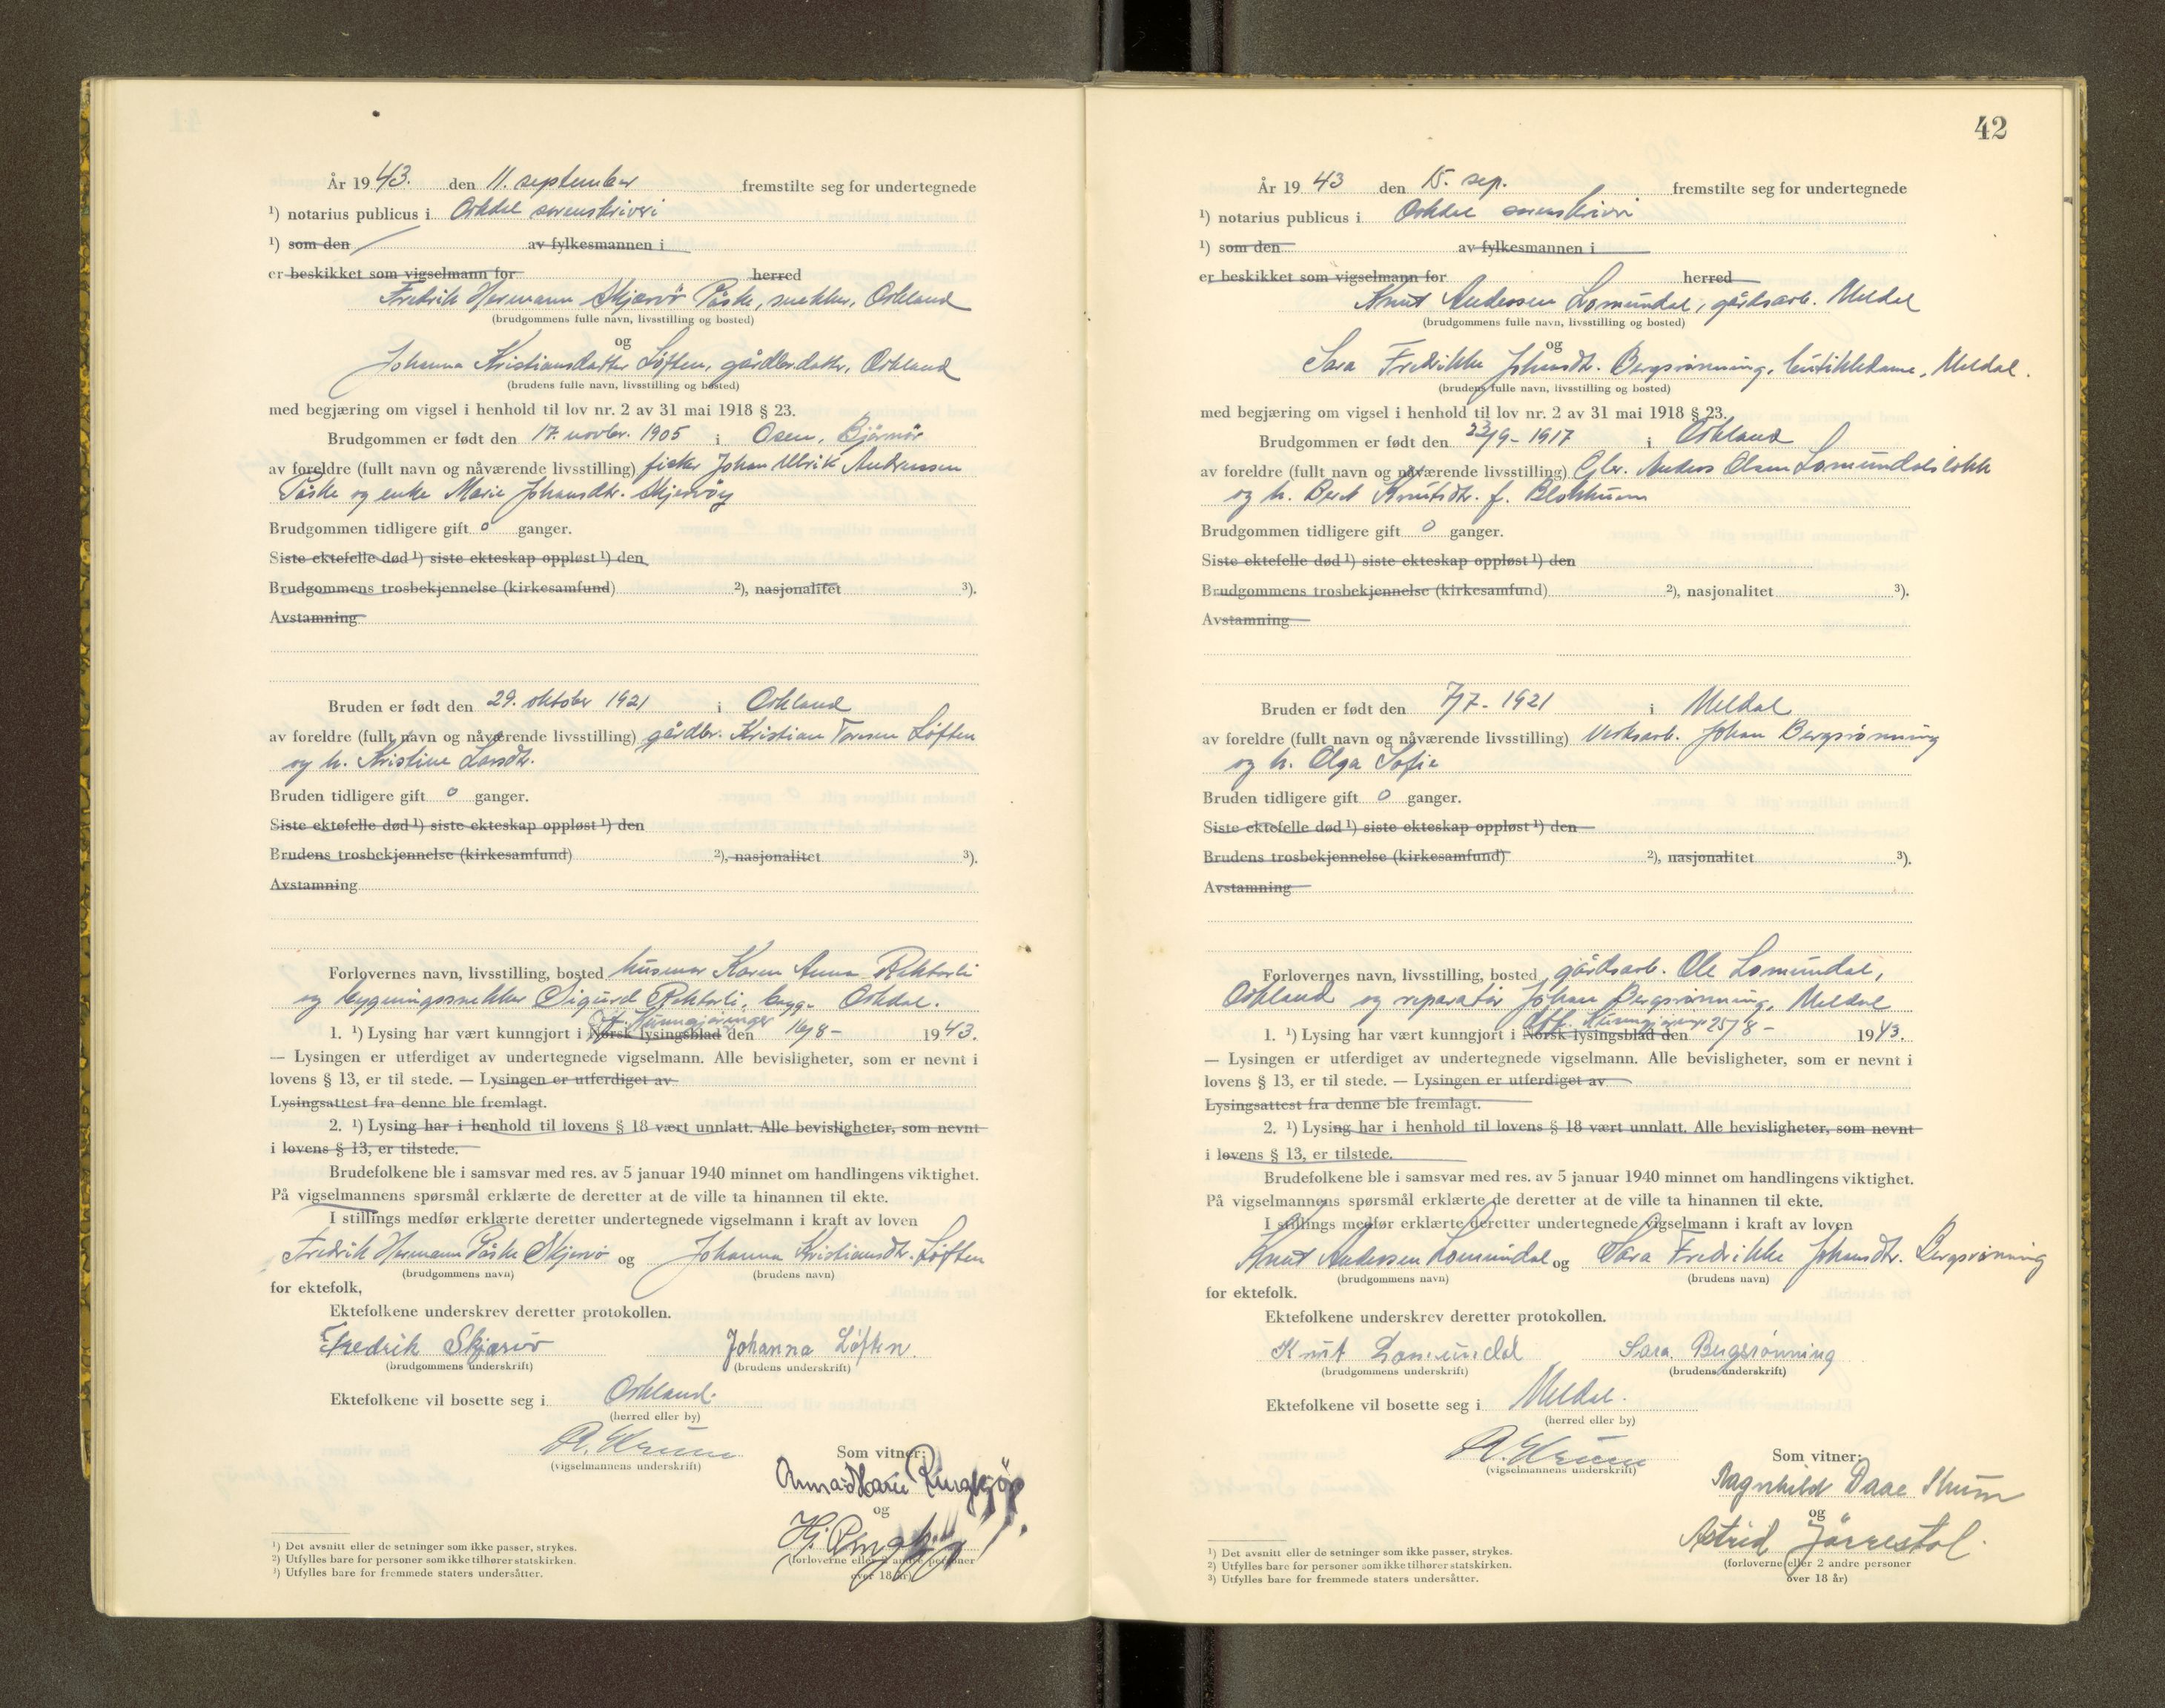 År 1943. den 11. september fremstilte seg for undertegnede
¹) notarius publicus i Orkdal sorenskriveri
¹) som den av fylkesmannen i
er beskikket som vigselmann for herred
Fredrik Hermann Skjærvør Påske, snekker, Orkland
(brudgommens fulle navn, livsstilling og bosted)
og
Johanna Kristiansdatter Løften, gårdbr.datter, Orkland
(brudens fulle navn, livsstilling og bosted)
med begjæring om vigsel i henhold til lov nr. 2 av 31 mai 1918 § 23.
Brudgommen er født den 17. novbr. 1905 i Osen, Bjørnør
av foreldre (fullt navn og nåværende livsstilling) fisker Johan Ulrik Andreassen
Påske og enke Marie Johansdtr. Skjervøy
Brudgommen tidligere gift 0 ganger.
Siste ektefelle død ¹) siste ekteskap oppløst ¹) den
Brudgommens trosbekjennelse (kirkesamfund) ²), nasjonalitet ³).
Avstamning
Bruden er født den 29. oktober 1921 i Orkland
av foreldre (fullt navn og nåværende livsstilling) gårdbr. Kristian Toresen Løften
og h. Kristine Larsdtr.
Bruden tidligere gift 0 ganger.
Siste ektefelle død ¹) siste ekteskap oppløst ¹) den
Brudens trosbekjennelse (kirkesamfund) ²), nasjonalitet ³).
Avstamning
Forlovernes navn, livsstilling, bosted husmor Karen Anna
og bygningssnekker Sigurd begge Orkdal.
1. ¹) Lysing har vært kunngjort i Norsk lysingsblad Off. Kunngjøringer den 16/8- 1943.
— Lysingen er utferdiget av undertegnede vigselmann. Alle bevisligheter, som er nevnt i
lovens § 13, er til stede. — Lysingen er utferdiget av
Lysingsattest fra denne ble fremlagt.
2. ¹) Lysing har i henhold til lovens § 18 vært unnlatt. Alle bevisligheter, som nevnt
i lovens § 13, er tilstede.
Brudefolkene ble i samsvar med res. av 5 januar 1940 minnet om handlingens viktighet.
På vigselmannens spørsmål erklærte de deretter at de ville ta hinannen til ekte.
I stillings medfør erklærte deretter undertegnede vigselmann i kraft av loven
Fredrik Hermann Påske Skjærvø og Johanna Kristiansdtr. Løften
(brudgommens navn) (brudens navn)
for ektefolk,
Ektefolkene underskrev deretter protokollen.
Fredrik Skjærvør Johanna Løften.
(brudgommens underskrift) (brudens underskrift)
Ektefolkene vil bosette seg i Orkland.
(herred eller by)
(vigselmannens underskrift)
Som vitner:
Anna Marie Ringkjøp
og
Hj. Ringkjøp
(forloverne eller 2 andre personer
over 18 år)
¹) Det avsnitt eller de setninger som ikke passer, strykes.
²) Utfylles bare for personer som ikke tilhører statskirken.
³) Utfylles bare for fremmede staters undersåtter.
42
År 1943 den 15. sep. fremstilte seg for undertegnede
¹) notarius publicus i Orkdal sorenskriveri
¹) som den av fylkesmannen i
er beskikket som vigselmann for herred
Knut Anderssen Lomundal, gårdsarb. Meldal
(brudgommens fulle navn, livsstilling og bosted)
og
Sara Fredrikke Johansdtr. Bergsrønning, butikkdame, Meldal.
(brudens fulle navn, livsstilling og bosted)
med begjæring om vigsel i henhold til lov nr. 2 av 31 mai 1918 § 23.
Brudgommen er født den 23/9-1917 i Orkland
av foreldre (fullt navn og nåværende livsstilling) Gbr. Anders Olsen Lomundalslökk
og h. Berit Knutsdtr. f. Blokkum
Brudgommen tidligere gift 0 ganger.
Siste ektefelle død ¹) siste ekteskap oppløst ¹) den
Brudgommens trosbekjennelse (kirkesamfund) ²), nasjonalitet ³).
Avstamning
Bruden er født den 7/7-1921 i Meldal
av foreldre (fullt navn og nåværende livsstilling) Verksarb. Johan Bergsrønning
og h. Olga Sofie
Bruden tidligere gift 0 ganger.
Siste ektefelle død ¹) siste ekteskap oppløst ¹) den
Brudens trosbekjennelse (kirkesamfund) ²), nasjonalitet ³).
Avstamning
Forlovernes navn, livsstilling, bosted gårdsarb. Ole Lomundal,
Orkland og reparatør Johan Bergsrønning, Meldal
1. ¹) Lysing har vært kunngjort i Norsk lysingsblad Off. Kunngjøringer den 25/8- 1943.
— Lysingen er utferdiget av undertegnede vigselmann. Alle bevisligheter, som er nevnt i
lovens § 13, er til stede. — Lysingen er utferdiget av
Lysingsattest fra denne ble fremlagt.
2. ¹) Lysing har i henhold til lovens § 18 vært unnlatt. Alle bevisligheter, som nevnt
i lovens § 13, er tilstede.
Brudefolkene ble i samsvar med res. av 5 januar 1940 minnet om handlingens viktighet.
På vigselmannens spørsmål erklærte de deretter at de ville ta hinannen til ekte.
I stillings medfør erklærte deretter undertegnede vigselmann i kraft av loven
Knut Anderssen Lomundal og Sara Fredrikke Johansdtr. Bergsrønning
(brudgommens navn) (brudens navn)
for ektefolk.
Ektefolkene underskrev deretter protokollen.
Knut Lomundal Sara Bergsrønning
(brudgommens underskrift) (brudens underskrift)
Ektefolkene vil bosette seg i Meldal.
(herred eller by)
(vigselmannens underskrift)
Som vitner:
Ragnhild Daae Krum
og
Astrid Jørrestol.
(forloverne eller 2 andre personer
over 18 år)
¹) Det avsnitt eller de setninger som ikke passer, strykes.
²) Utfylles bare for personer som ikke tilhører statskirken.
³) Utfylles bare for fremmede staters undersåtter.